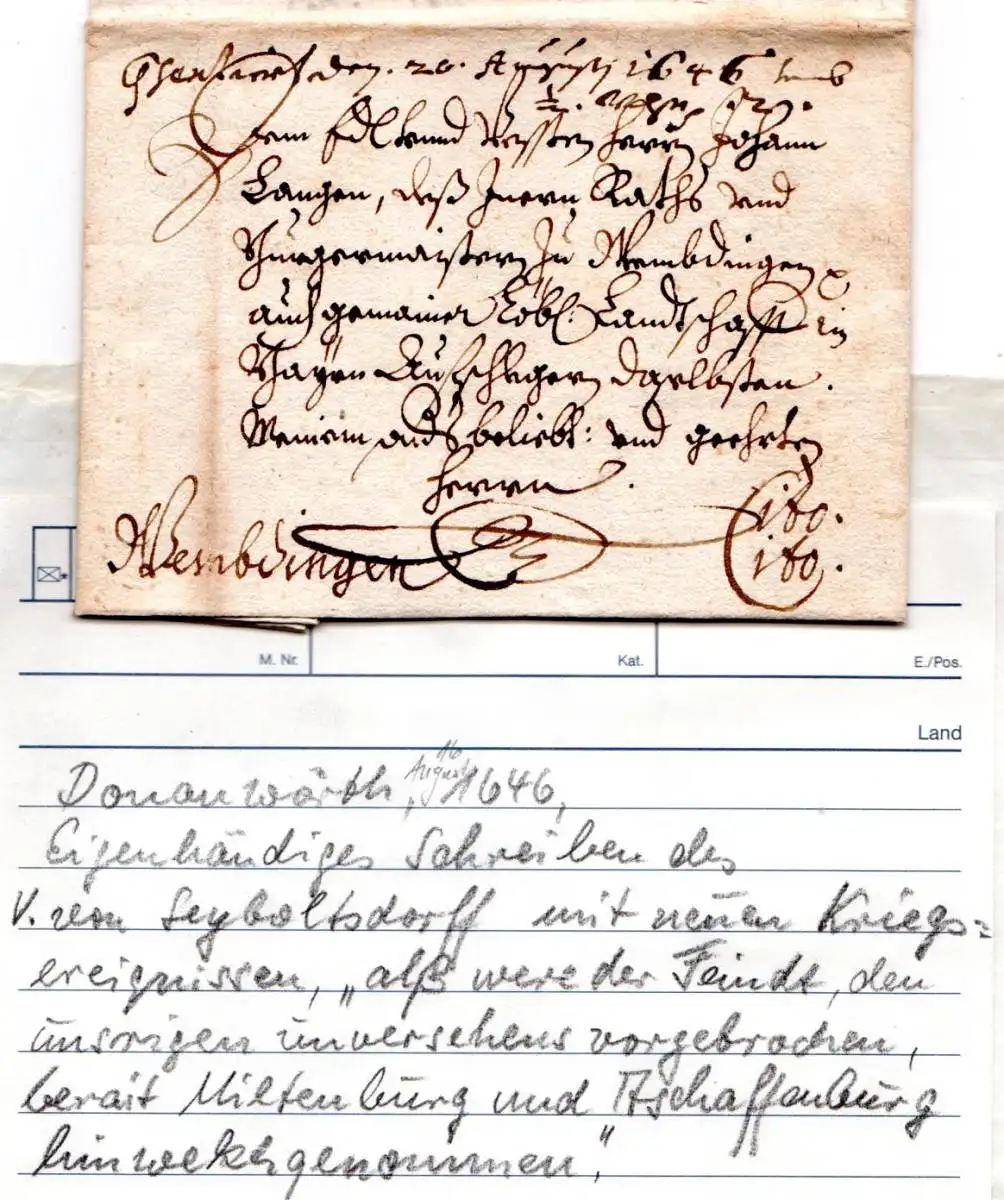 den 20. Augusti 1646 umb
1/2.
Dem Edl und Vessten Herrn Johann
Langen, deß Inern Raths und
Burgermaistern zu Wembdingen
auch gemainer Löbl: Landtschafft in
Bayrn Aufschlegern daselbsten.
Meinem beliebt: und geehrten
Herrn.
Wembdingen
Cito.
Cito.
M. Nr.
Kat.
E./Pos.
Land
Donauwörth, 16 August 1646,
Eigenhändiges Schreiben des
V. von Seyboltsdorff mit neuen Kriegs=
ereignissen, „alß were der Feindt, den
unsrigen unversehens vorgebrochen,
berait Miltenburg und Aschaffenburg
hinwekhgenommen,"